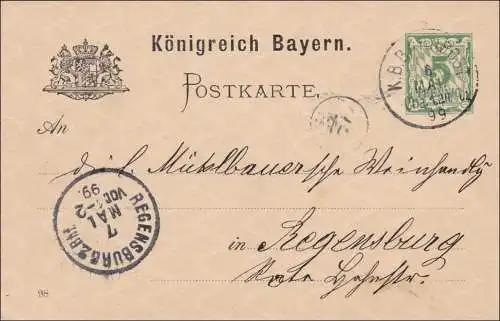 Königreich Bayern.
POSTKARTE.
K.B.B
5
6
MAI
99
An
die L. Mühlbauersche Weinhandlg
REGENSBURG 2 BHF.
7
MAI
VOR 1-2
99.
in Regensburg
Rote Hahnstr.
98